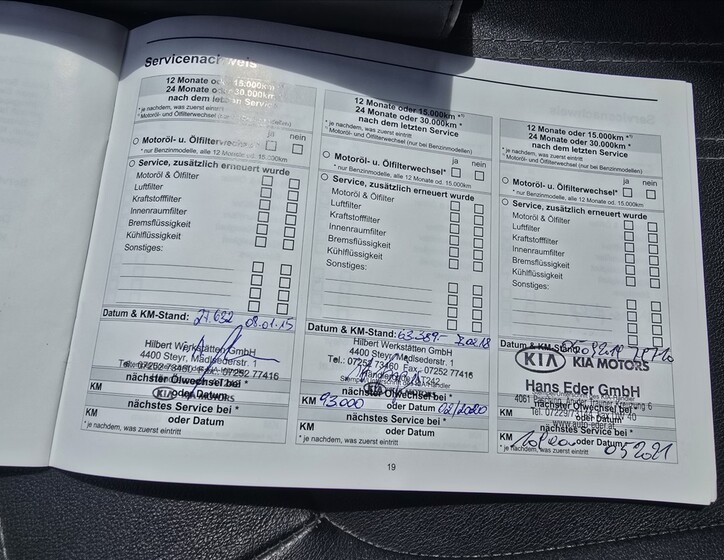 Servicenachweis
12 Monate oder 15.000km
24 Monate oder 30.000km
nach dem letzten Service
* je nachdem, was zuerst eintritt
ja nein
Motoröl- u. Ölfilterwechsel*
* nur Benzinmodelle, alle 12 Monate od. 15.000km
Service, zusätzlich erneuert wurde
Motoröl & Ölfilter
Luftfilter
Kraftstofffilter
Innenraumfilter
Bremsflüssigkeit
Kühlflüssigkeit
Sonstiges:
Datum & KM-Stand: 27632 08.01.15
Hilbert Werkstätten GmbH
4400 Steyr, Madlsederstr. 1
Tel.: 07252 73460 Fax: 07252 77416
nächster Ölwechsel bei *
KM oder Datum
nächstes Service bei *
KM
oder Datum
* je nachdem, was zuerst eintritt
12 Monate oder 15.000km *⁾
24 Monate oder 30.000km *
nach dem letzten Service
* je nachdem, was zuerst eintritt
Motoröl- und Ölfilterwechsel (nur bei Benzinmodellen)
ja nein
Motoröl- u. Ölfilterwechsel*
* nur Benzinmodelle, alle 12 Monate od. 15.000km
Service, zusätzlich erneuert wurde
Motoröl & Ölfilter
Luftfilter
Kraftstofffilter
Innenraumfilter
Bremsflüssigkeit
Kühlflüssigkeit
Sonstiges:
Datum & KM-Stand: 63.389.-
Hilbert Werkstätten GmbH
4400 Steyr, Madlsederstr. 1
Tel.: 07252 73460 Fax: 07252 77416
KIA MOTORS
nächster Ölwechsel bei *
KM 93.000 oder Datum 02/2020
nächstes Service bei *
KM
oder Datum
* je nachdem, was zuerst eintritt
12 Monate oder 15.000km *⁾
24 Monate oder 30.000km *
nach dem letzten Service
* je nachdem, was zuerst eintritt
Motoröl- und Ölfilterwechsel (nur bei Benzinmodellen)
ja nein
Motoröl- u. Ölfilterwechsel*
* nur Benzinmodelle, alle 12 Monate od. 15.000km
Service, zusätzlich erneuert wurde
Motoröl & Ölfilter
Luftfilter
Kraftstofffilter
Innenraumfilter
Bremsflüssigkeit
Kühlflüssigkeit
Sonstiges:
Datum & KM-Stand:
KIA KIA MOTORS
Hans Eder GmbH
nächster Ölwechsel bei *
KM oder Datum
www.auto-eder.at
nächstes Service bei *
KM oder Datum 05 2021
* je nachdem, was zuerst eintritt
19